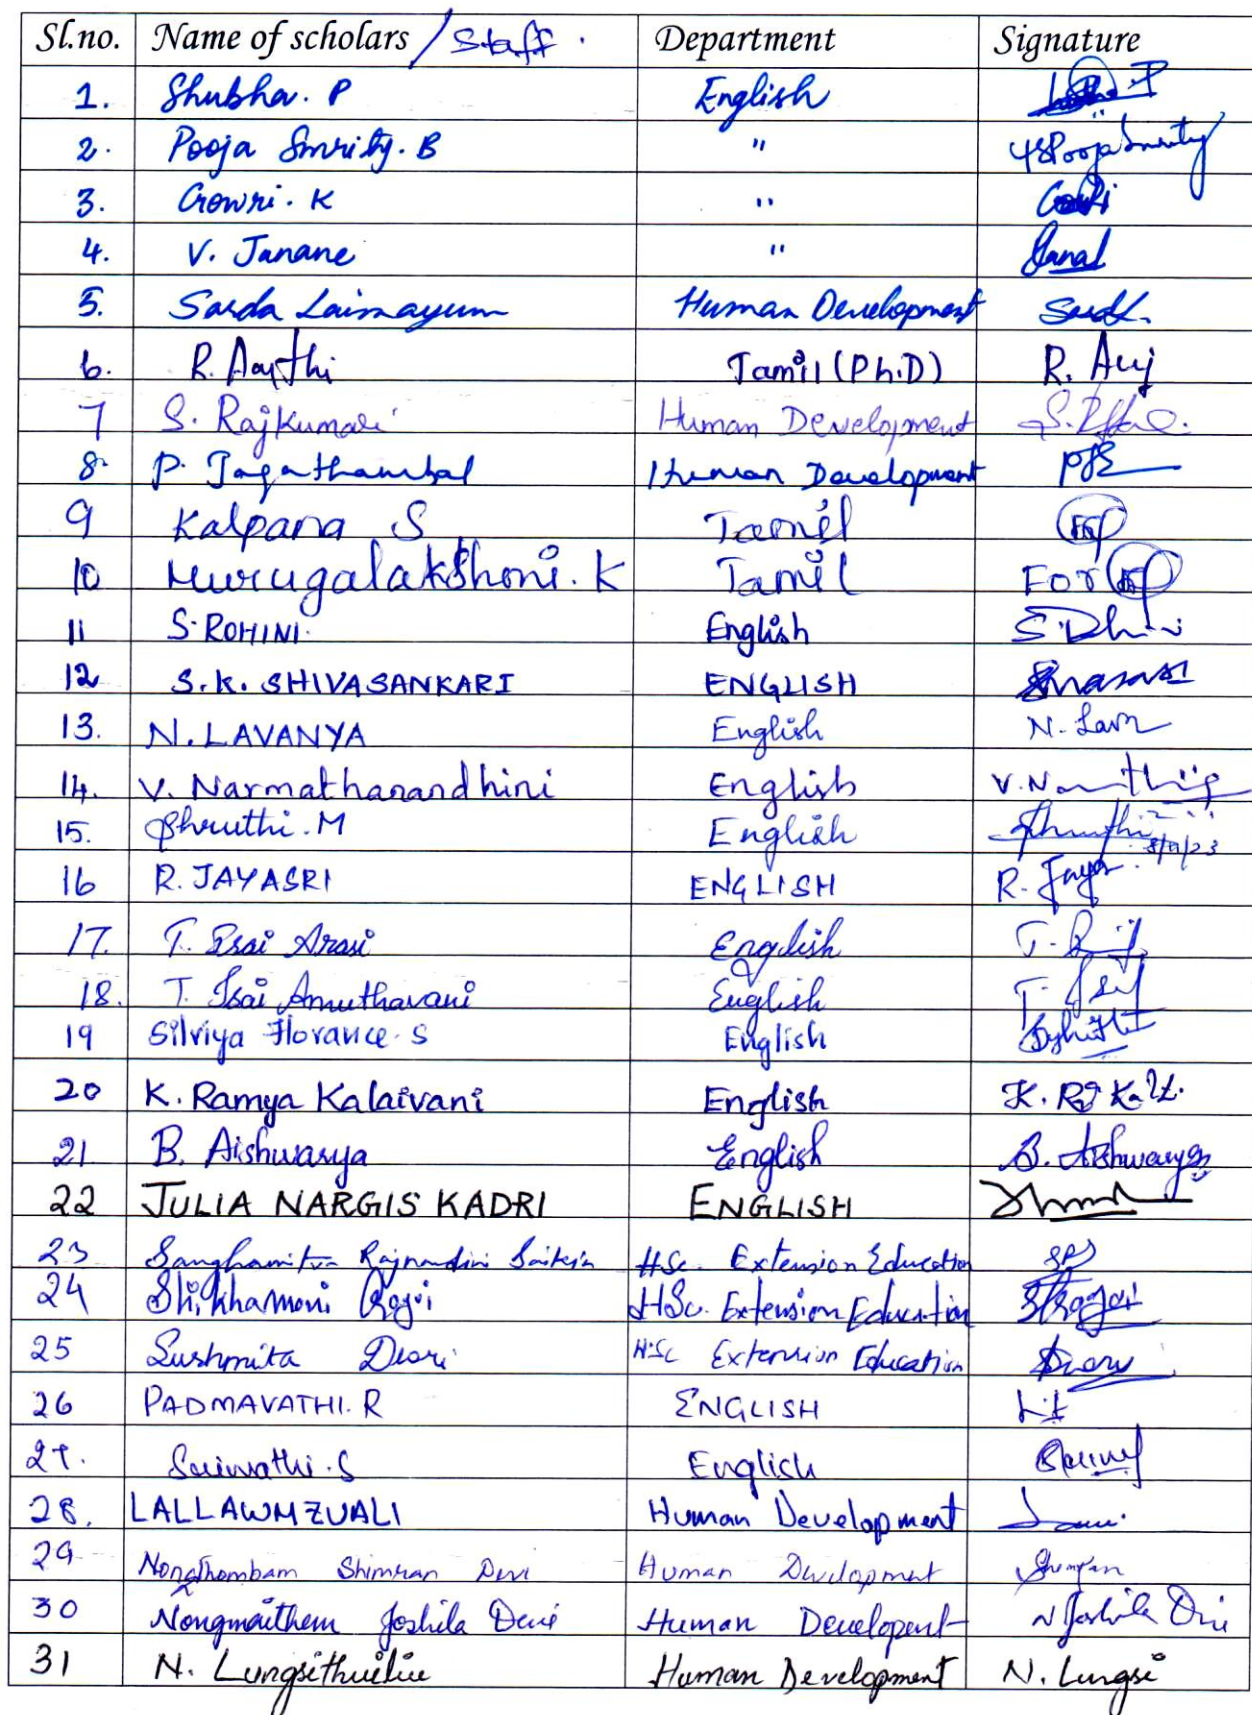 Sl.no. Name of scholars / Staff . Department Signature
1. Shubha. P English
2. Pooja Smrity. B " Pooja Smrity
3. Gowri. K " Gowri
4. V. Janane " Janal
5. Sarda Laimayum Human Development
6. R. Aarthi Tamil (Ph.D) R.
7 S. Rajkumari Human Development S.
8. P. Jagathambal Human Development
9 Kalpana S Tamil
10 Murugalakshmi. K Tamil For
11 S. ROHINI. English
12 S.K. SHIVASANKARI ENGLISH
13. N. LAVANYA English N. Lavn
14. V. Narmathanandhini English
15. Shruthi. M English Shruthi
16 R. JAYASRI ENGLISH R. Jaya
17. T. Isai Arasi English T.
18. T. Isai Amuthavani English T.
19 Silviya Florance. S English
20 K. Ramya Kalaivani English K.
21 B. Aishwarya English B. Aishwarya
22 JULIA NARGIS KADRI ENGLISH
23 Sanghamitra Rajnandini Saikia HSc. Extension Education
24 Shikhamoni Gogoi HSc. Extension Education
25 Sushmita Deori HSc Extension Education Deori
26 PADMAVATHI. R ENGLISH
27. S English
28. LALLAWMZUALI Human Development
29 Nongthombam Shimran Devi Human Development
30 Nongmaithem Joshila Devi Human Developent N Joshila Devi
31 N. Lungsithuiliu Human Development N. Lungsi